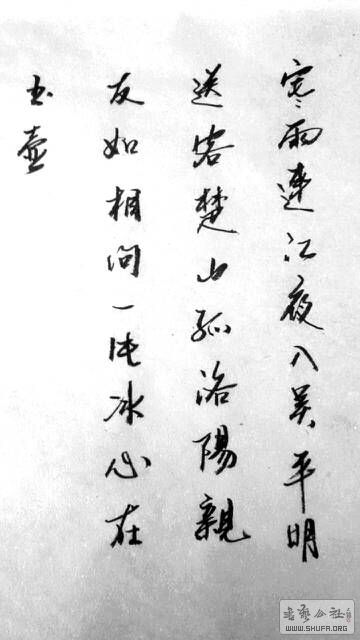 寒雨連江夜入吴平明
送客楚山孤洛陽親
友如相问一片冰心在
玉壺
WWW.SHUFA.ORG